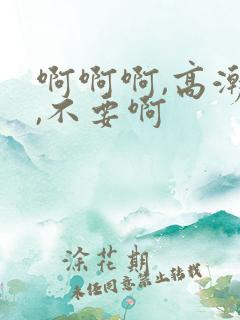 啊啊啊,高潮
,不要啊
涂花期
未经同意禁止转载